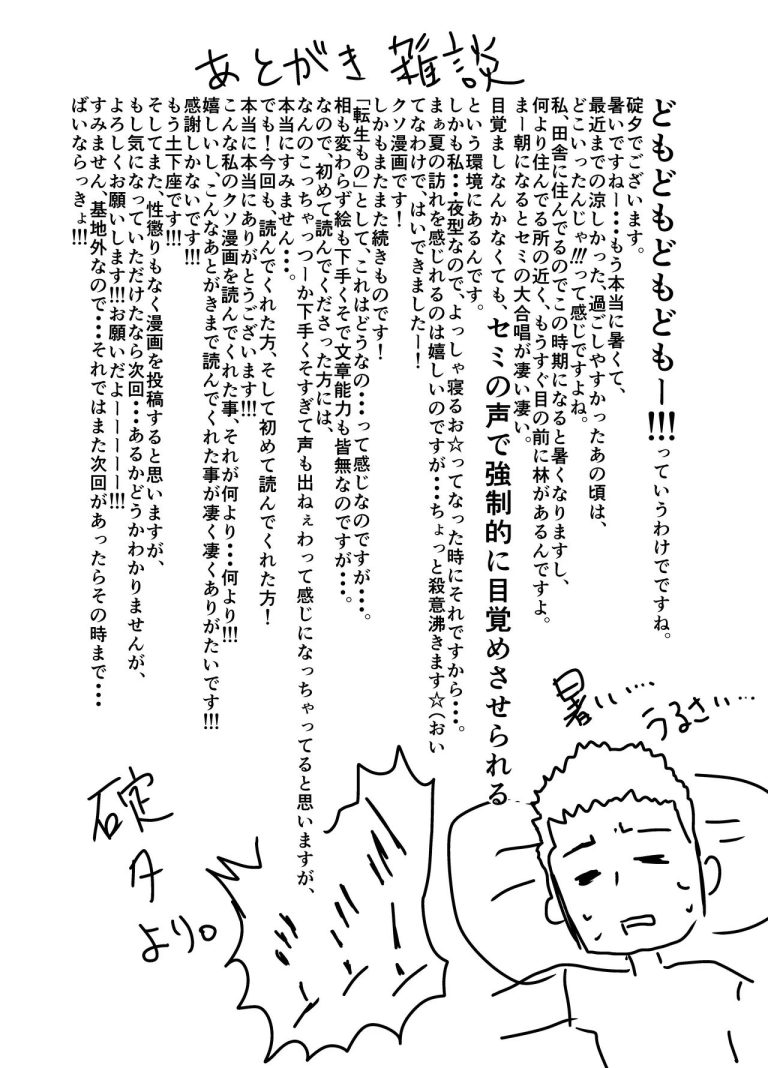 あとがき雑談
どもどもどもどもー!!!っていうわけでですね。
碇夕でございます。
暑いですねー・・・もう本当に暑くて、
最近までの涼しかった、過ごしやすかったあの頃は、
どこいったんじゃ!!!って感じですよね。
私、田舎に住んでるのでこの時期になると暑くなりますし、
何より住んでる所の近く、もうすぐ目の前に林があるんですよ。
まー朝になるとセミの大合唱が凄い凄い。
目覚ましなんかなくても、セミの声で強制的に目覚めさせられる
という環境にあるんです。
しかも私・・・夜型なので、よっしゃ寝るお☆ってなった時にそれですから・・・。
まぁ夏の訪れを感じれるのは嬉しいのですが・・・ちょっと殺意沸きます☆(おい
てなわけで、はいできましたー!
クソ漫画です!
しかもまたまた続きものです!
「転生もの」として、これはどうなの・・・って感じなのですが・・・。
相も変わらず絵も下手くそで文章能力も皆無なのですが・・・。
なので、初めて読んでくださった方には、
なんのこっちゃっつーか下手くそすぎて声も出ねぇわって感じになっちゃってると思いますが、
本当にすみません・・・。
でも!今回も、読んでくれた方、そして初めて読んでくれた方!
本当に本当にありがとうございます!!!
こんな私のクソ漫画を読んでくれた事、それが何より・・・何より!!!
嬉しいし、こんなあとがきまで読んでくれた事が凄く凄くありがたいです!!!
感謝しかないです!!!
もう土下座です!!!
そしてまた、性懲りもなく漫画を投稿すると思いますが、
もし気になっていただけたなら次回・・・あるかどうかわかりませんが、
よろしくお願いします!!!お願いだよーーーーー!!!
すみません、基地外なので・・・それではまた次回があったらその時まで・・・
ばいならっきょ!!!
暑い…
うるさい…
ミーン
ミーン
碇夕より。